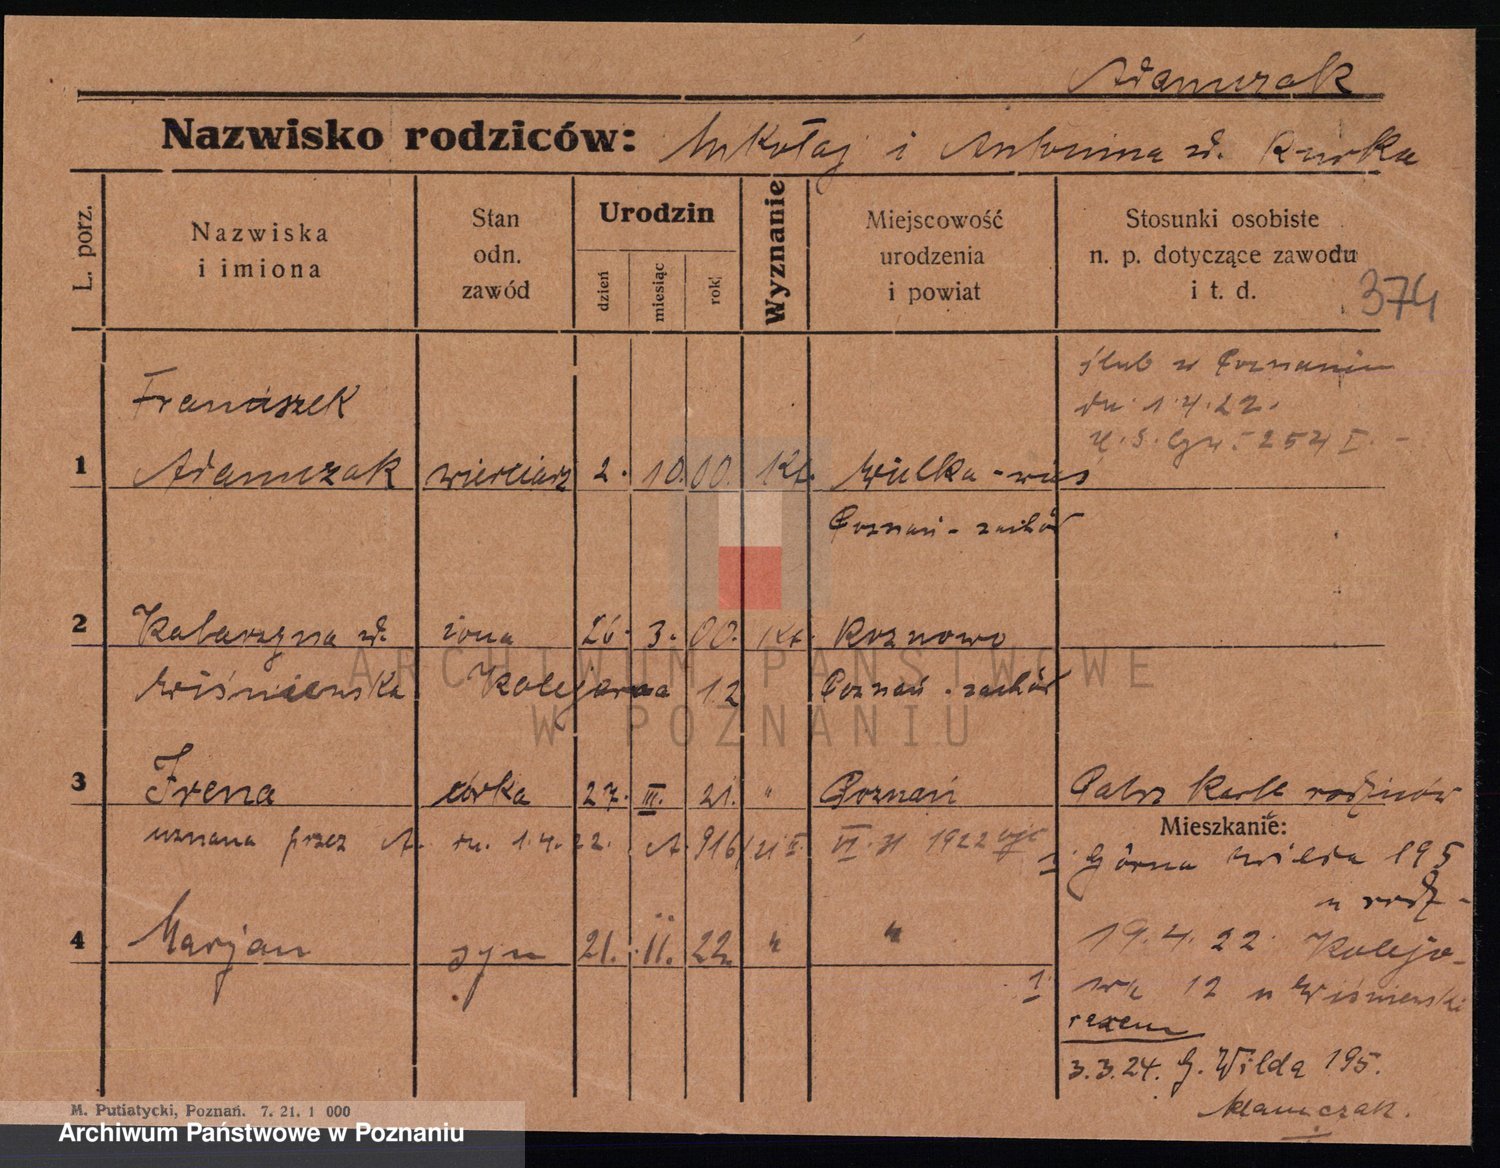 Adamczak
Nazwisko rodziców: Mikołaj i Antonina zd. Kurka
L. porz.
Nazwiska
i imiona
Stan
odn.
zawód
Urodzin
dzień
miesiąc
rok
Wyznanie
Miejscowość
urodzenia
i powiat
Stosunki osobiste
n. p. dotyczące zawodu
i t. d.
374
ślub w Poznaniu
dn. 1.4.22.
Franciszek
1 Adamczak wierciarz 2. 10. 00. kt. Wielka-wieś
Poznań - zachód
2 Katarzyna zd. żona 26. 3. 00. kt. Roznowo
Wiśniewska Kolejowa 12 Poznań - zachód
3 Irena córka 27. III. 21. " Poznań Patrz karte rodziców
uznana przez A. dn. 1.4.22. A. 916
VI. 1922
Mieszkanie:
1 Górna Wilda 195
u rodz-
4 Marjan syn 21. II. 22. " "
19.4.22. Kolejo-
1 wa 12 u Wiśniewski
razem
3.3.24. G. Wilda 195.
Adamczak.
M. Putiatycki, Poznań. 7. 21. 1 000
ARCHIWUM PAŃSTWOWE
W POZNANIU
Archiwum Państwowe w Poznaniu